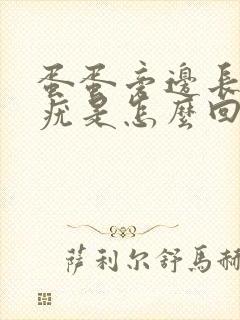 蛋蛋旁邊長
疣是怎麼回
萨利尔舒馬赫